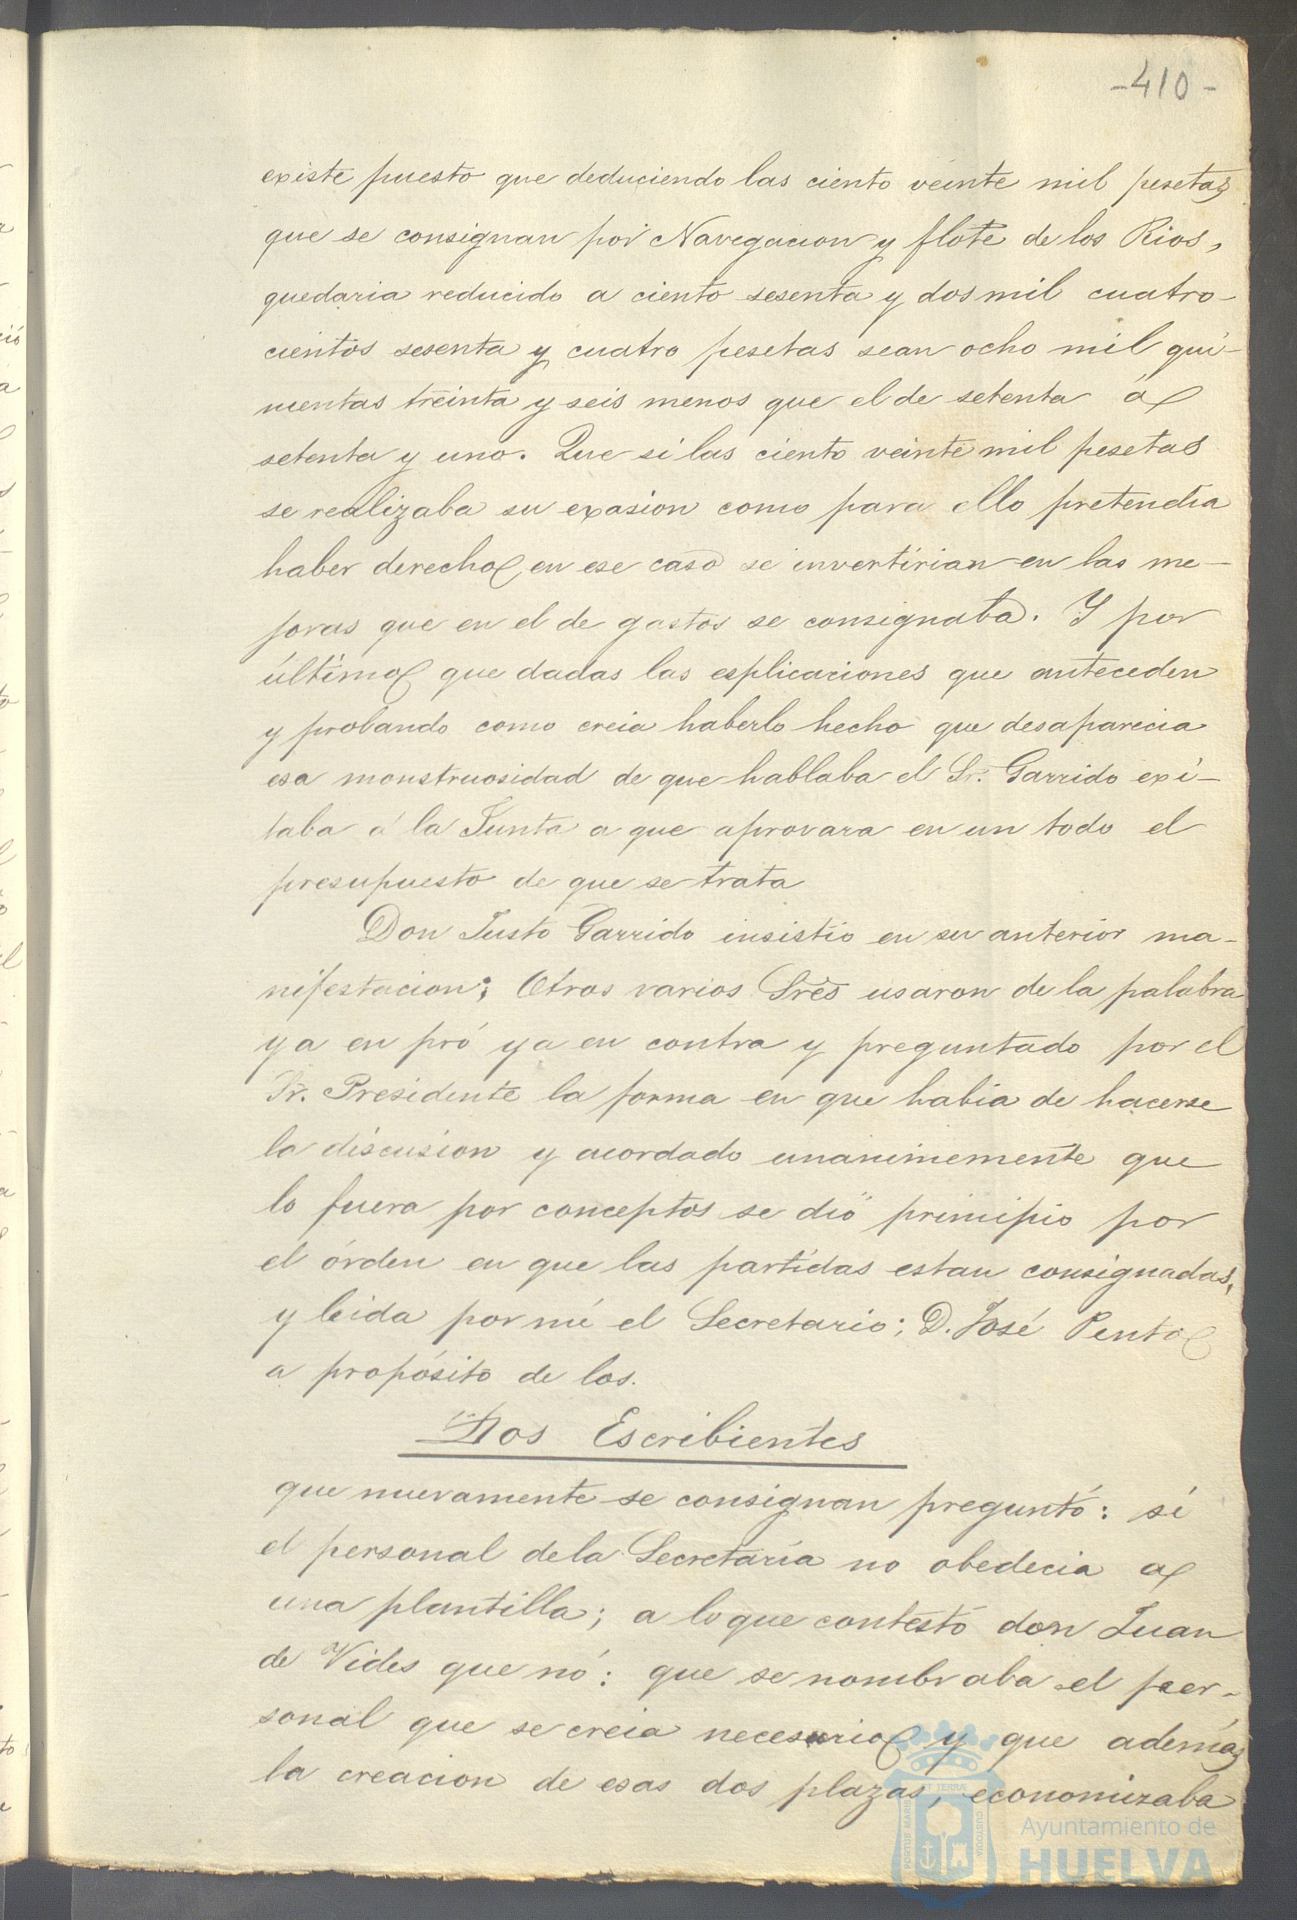 -410-
existe puesto que deduciendo las ciento veinte mil pesetas
que se consignan por Navegacion y flote de los Rios,
quedaria reducido a ciento sesenta y dos mil cuatro-
cientos sesenta y cuatro pesetas sean ocho mil qui-
nientas treinta y seis menos que el de setenta á
setenta y uno. Que si las ciento veinte mil pesetas
se realizaba su exasion como para ello pretendia
haber derecho en ese caso se invertirian en las me-
joras que en el de gastos se consignaba. Y por
último que dadas las esplicaciones que anteceden
y probando como creia haberlo hecho que desaparecia
esa monstruosidad de que hablaba el Sr. Garrido exi-
taba á la Junta a que aprovara en un todo el
presupuesto de que se trata
Don Justo Garrido insistió en su anterior ma-
nifestacion; Otros varios Sres usaron de la palabra
ya en pró ya en contra y preguntado por el
Sr. Presidente la forma en que habia de hacerse
la discusion y acordado unanimemente que
lo fuera por conceptos se dió principio por
el órden en que las partidas estan consignadas,
y leida por mí el Secretario; D. José Pento
a propósito de los.
Dos Escribientes
que nuevamente se consignan preguntó: si
el personal de la Secretaría no obedecia a
una plantilla; a lo que contestó don Juan
de Vides que nó: que se nombraba el per-
sonal que se creia necesario y que además
la creacion de esas dos plazas, economizaba
Ayuntamiento de
HUELVA